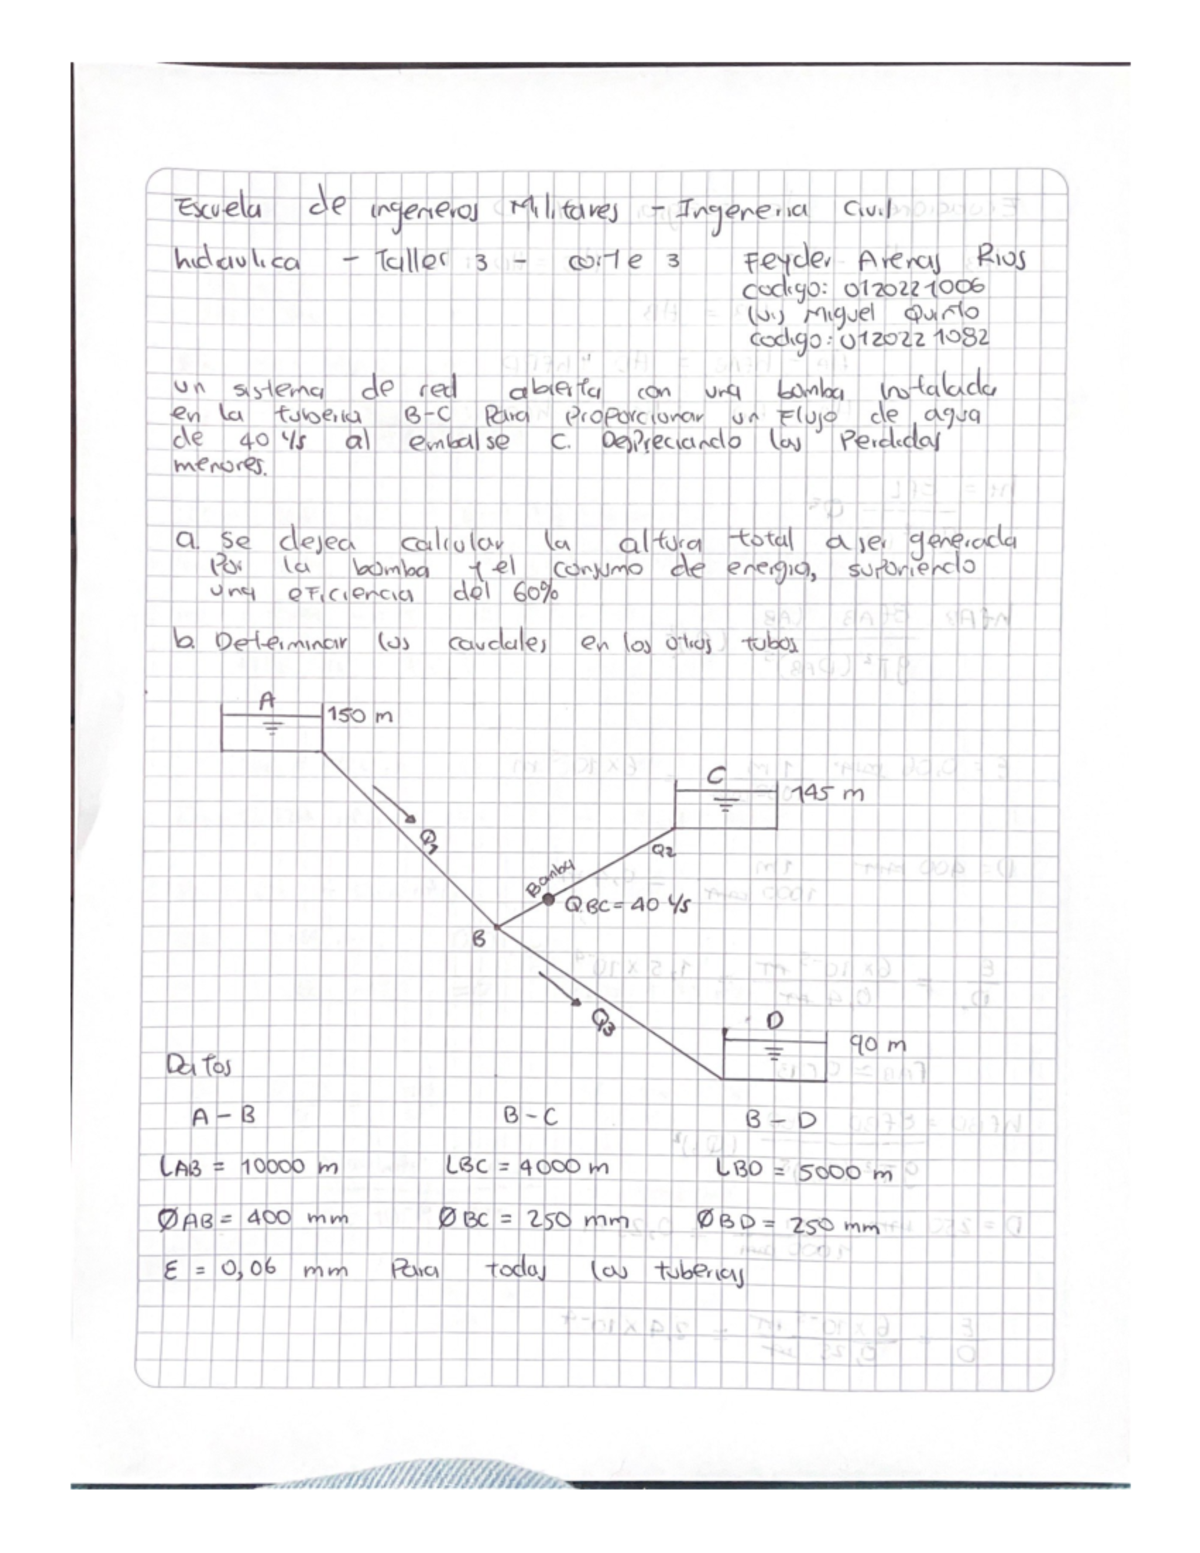 Escuela de ingenieros Militares - Ingeneria Civil
hidaulica - Taller 3 - corte 3 Feyder Arenas Rios
codigo: 0120221006
Luis Miguel Quinto
codigo: 0120221082
un sistema de red abierta con una bomba instalada
en la tuberia B-C Para proporcionar un Flujo de agua
de 40 l/s al embalse C. Despreciando las Perdidas
menores.
a. se desea calcular la altura total a ser generada
Por la bomba y el consumo de energia, suponiendo
una eficiencia del 60%
b. Determinar los caudales en los otros tubos
A
150 m
C
145 m
Q1
Q2
Bomba
QBC = 40 l/s
B
Q3
D
90 m
Datos
A - B B - C B - D
LAB = 10000 m LBC = 4000 m LBD = 5000 m
ØAB = 400 mm ØBC = 250 mm ØBD = 250 mm
E = 0,06 mm Para todas las tuberias